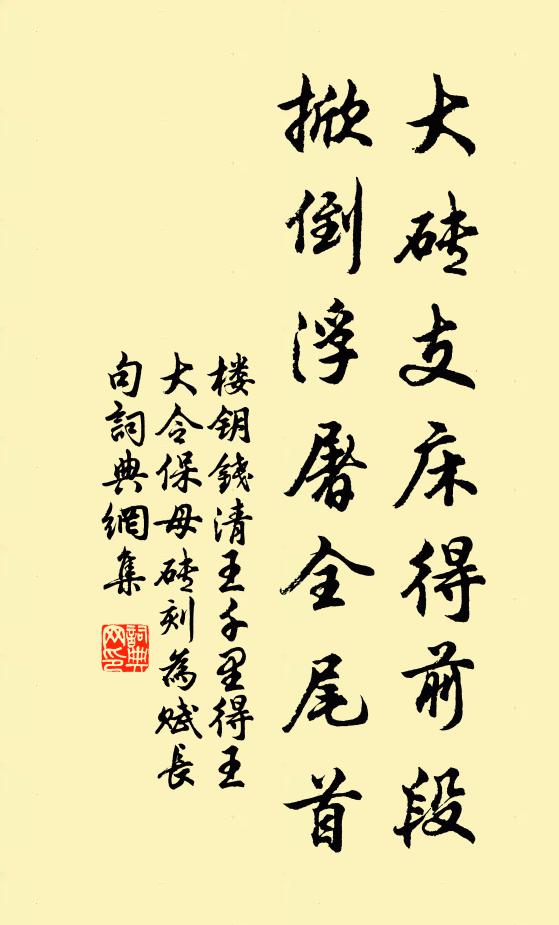 大砖支床得前段
掀倒浮屠全尾首
楼钥錢清王千里得王
大令保母砖刻為赋長
句詞典網集
詞典
网印